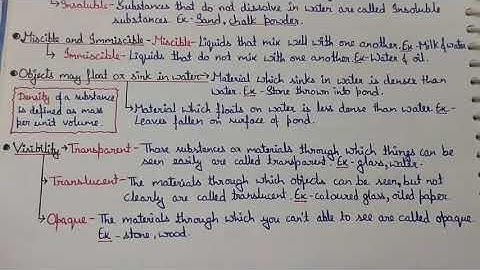 Insoluble - Substances that do not dissolve in water are called Insoluble
substances. Ex - Sand, chalk powder.
Miscible and Immiscible - Miscible - Liquids that mix well with one another. Ex - Milk & water
Immiscible - Liquids that do not mix with one another. Ex - Water & oil.
Objects may float or sink in water → Material which sinks in water is denser than
water. Ex - Stone thrown into pond.
Density of a substance
is defined as mass
per unit volume.
Material which floats on water is less dense than water. Ex -
Leaves fallen on surface of pond.
Visibility → Transparent - Those substances or materials through which things can be
seen easily are called transparent. Ex - glass, water.
Translucent - The materials through which objects can be seen, but not
clearly are called translucent. Ex - coloured glass, oiled paper.
Opaque - The materials through which you can't able to see are called opaque.
Ex - stone, wood.